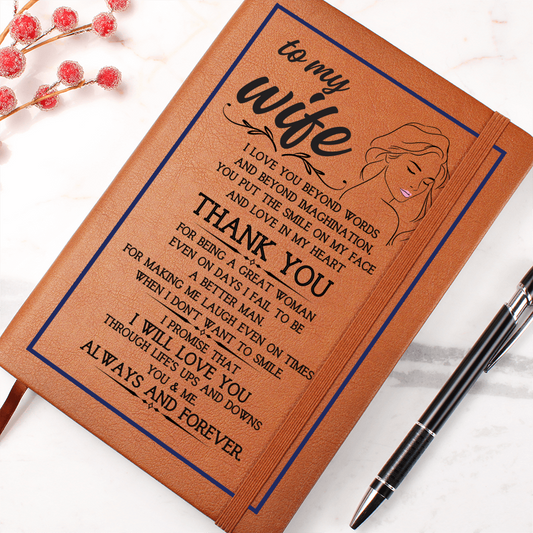 to my
wife
I LOVE YOU BEYOND WORDS
AND BEYOND IMAGHINATION.
YOU PUT THE SMILE ON MY FACE
AND LOVE IN MY HEART
THANK YOU
FOR BEING A GREAT WOMAN
EVEN ON DAYS I FAIL TO BE
A BETTER MAN.
FOR MAKING ME LAUGH EVEN ON TIMES
WHEN I DON'T WANT TO SMILE
I PROMISE THAT
I WILL LOVE YOU
THROUGH LIFE'S UPS AND DOWNS
YOU & ME.
ALWAYS AND FOREVER.